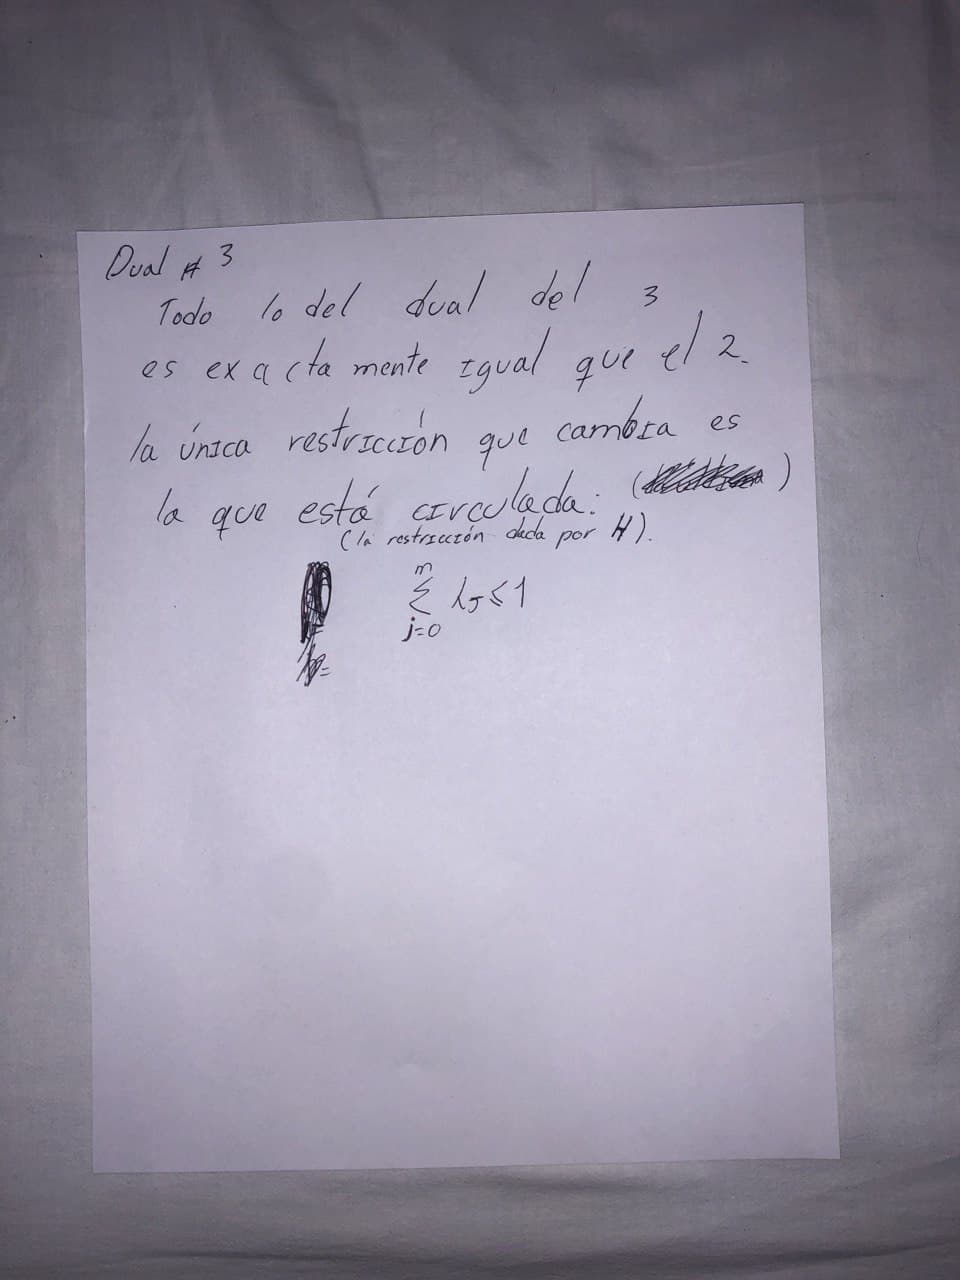 Dual # 3
Todo lo del dual del 3
es exactamente igual que el 2.
la única restricción que cambia es
la que está circulada: ( )
(la restricción dada por H).
m
Σ λj ≤ 1
j=0